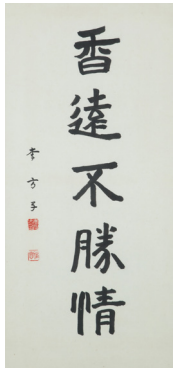 香遠不勝情
李方子